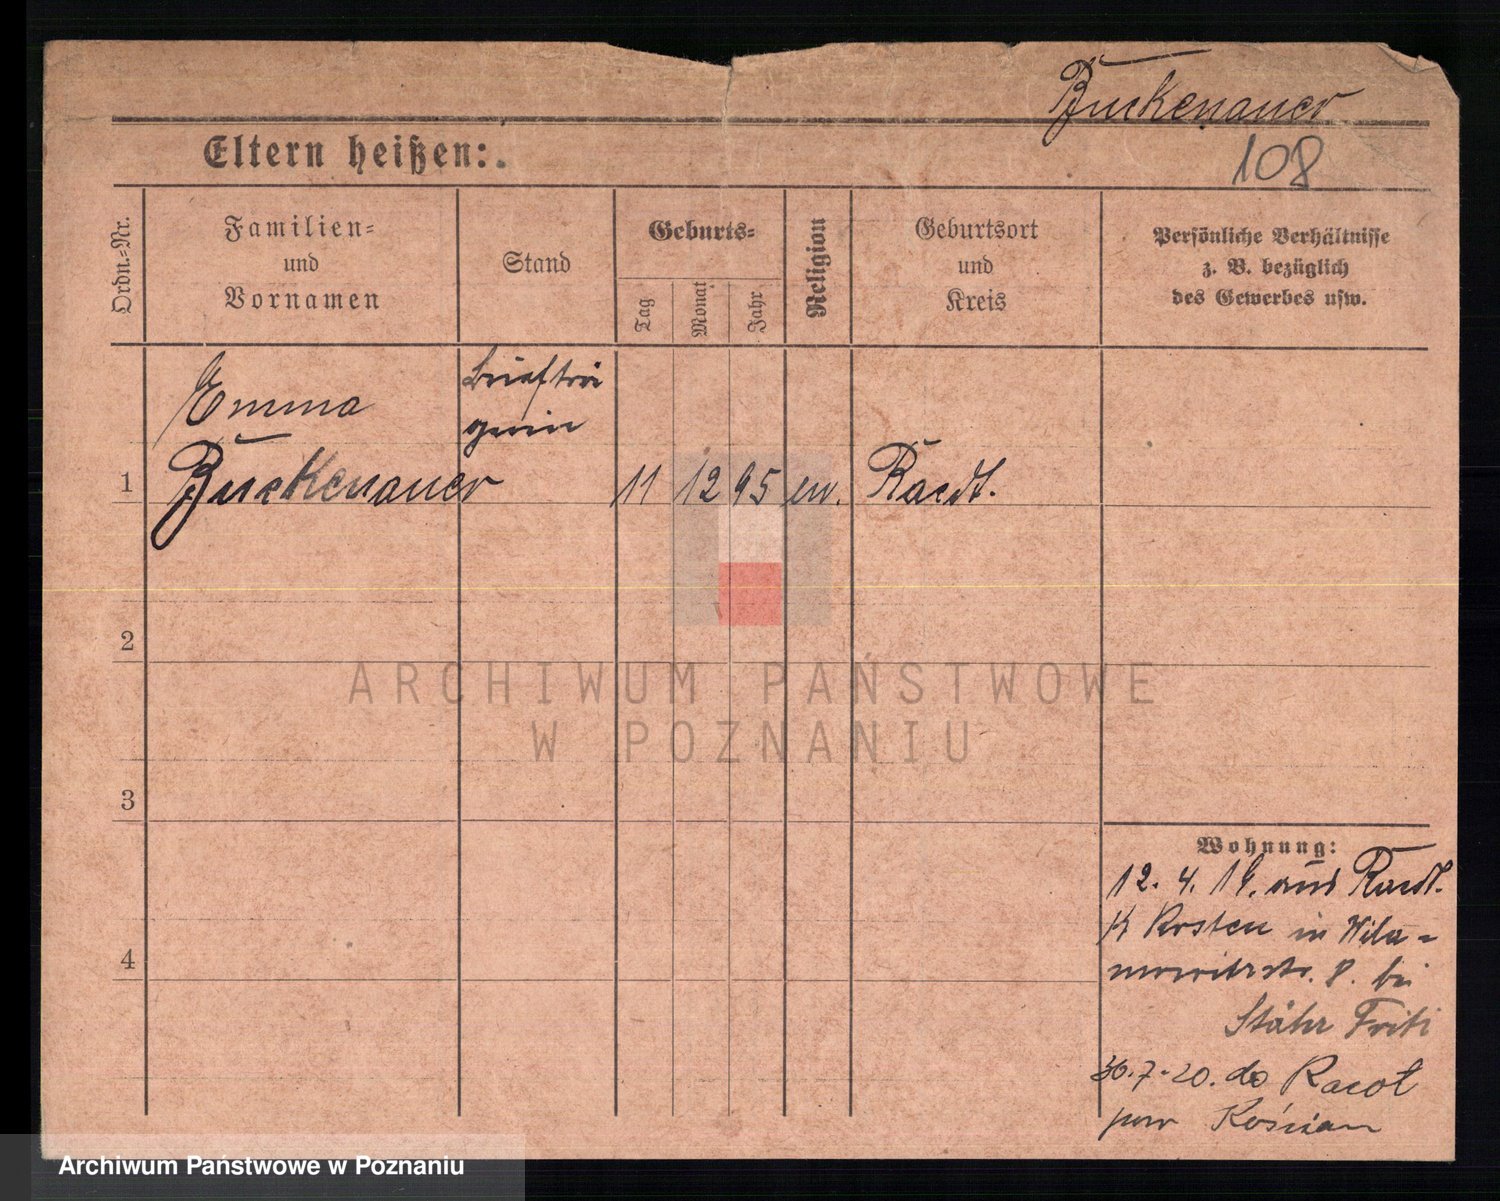 Buckenauer
108
Eltern heißen:
Ordn.-Nr.
Familien=
und
Vornamen
Stand
Geburts=
Tag
Monat
Jahr
Religion
Geburtsort
und
Kreis
Persönliche Verhältnisse
z. B. bezüglich
des Gewerbes usw.
Emma
Buckenauer
Briefträ
gerin
1
11 12 95 ev. Racot.
2
3
4
Wohnung:
12. 4. 19. aus Racot.
K Kosten in Wila=
mowitzstr. 8. bei
Stähr Fritz
30.7.20. do Racot
pow Kościan
ARCHIWUM PAŃSTWOWE
W POZNANIU
Archiwum Państwowe w Poznaniu